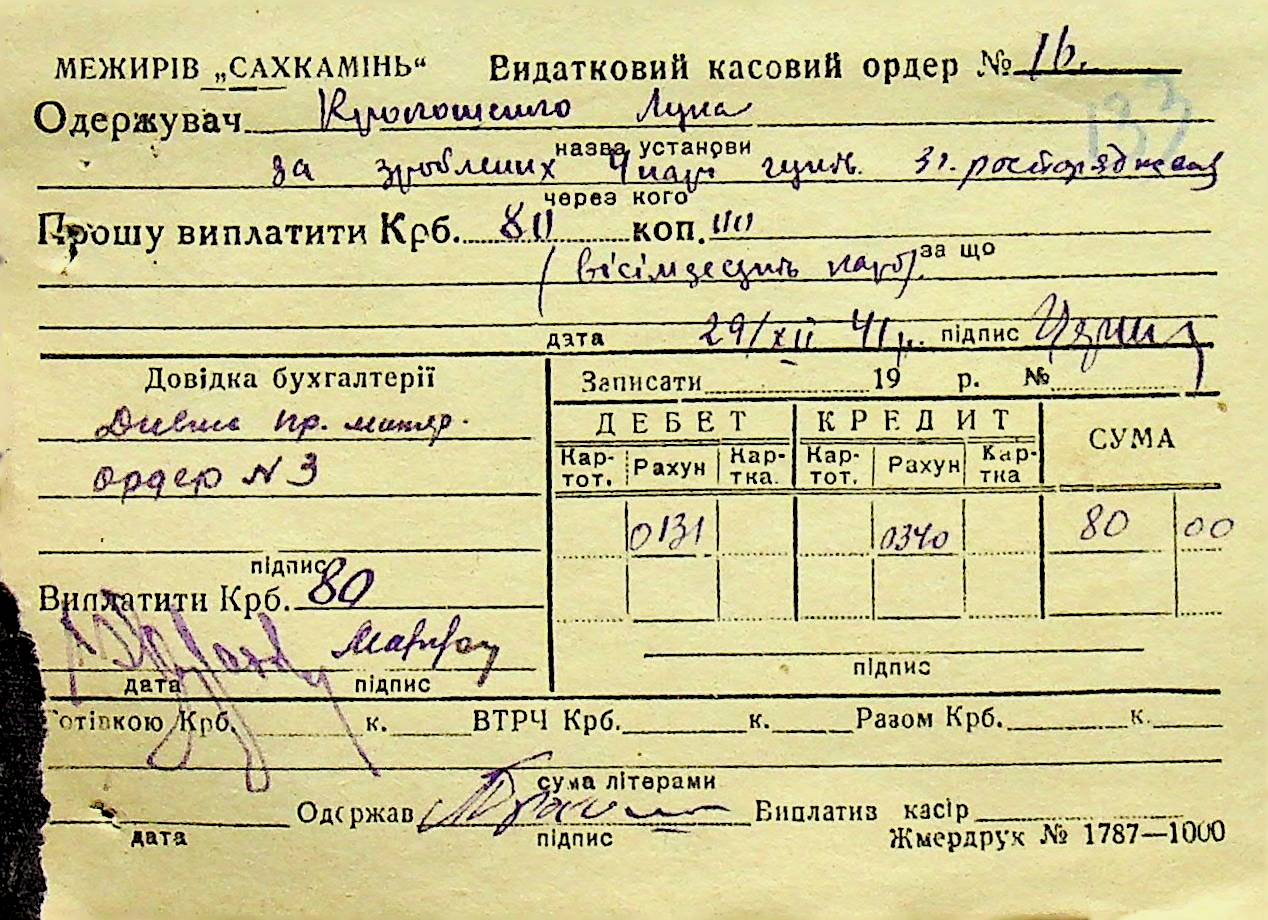 МЕЖИРІВ „САХКАМІНЬ“ Видатковий касовий ордер № 16.
133
Одержувач Лука
назва установи
за зроблених 4 пари зг. росторядження
через кого
Прошу виплатити Крб. 80 коп. 00
за що
(вісімдесять карб).
дата 29/XII 41р. підпис
Довідка бухгалтерії
Дивись пр. матер.
ордер N 3
підпис
Виплатити Крб. 80
дата підпис
Записати 19 р. №
ДЕБЕТ КРЕДИТ СУМА
Кар-тот. Рахун Кар-тка. Кар-тот. Рахун Кар-тка
0131 0340 80 00
підпис
Готівкою Крб. к. ВТРЧ Крб. к. Разом Крб. к.
сума літерами
Одержав Виплатив касір
дата підпис
Жмердрук № 1787—1000